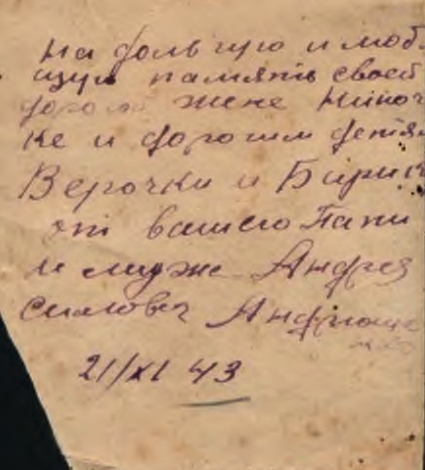 На дольгую и люб
щую память своей
дорогой жене Ниноч
ке и дорогим детя
Верочки и Бори
от вашего Папи
и мужа Андрея
Андрюще
21/XI 43